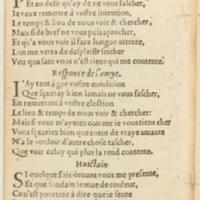 Et au desir qu'ay de ne vous fascher,
Ie veux remettre à vostre intention,
Le temps & lieu de nous voir & chercher,
Mais si de bref ne vous puis aprocher,
Et qu'à vous voir il face longue attente,
Lon me verra de desplaisir seicher
Veu que sans vous n'est riens qui me contente.
Responce de l'amye.
I'Ay tant à gré vostre condition
Que sçauray bien iamais ne vous fascher,
En remettant à vostre election
Le lieu & temps de nous voir & chercher:
Mais si vous m'aymez comme ie vous tiens cher
Vous sçauriez bien que coeur de vraye amante
N'a le vouloir d'autre chose tascher,
Que voir celuy qui plus la rend contente.
Huictain
SI quelque fois deuant vous me presente,
Et que soudain ie mue de couleur,
Ce n'est pourtant à dire que ie sente